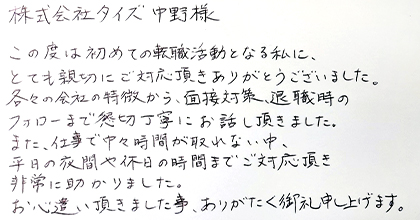 株式会社タイズ 中野様
この度は初めての転職活動となる私に、
とても親切にご対応頂きありがとうございました。
各々の会社の特徴から、面接対策、退職時の
フォローまで懇切丁寧にお話し頂きました。
また、仕事で中々時間が取れない中、
平日の夜間や休日の時間までご対応頂き
非常に助かりました。
お心遣い頂きました事、ありがたく御礼申し上げます。